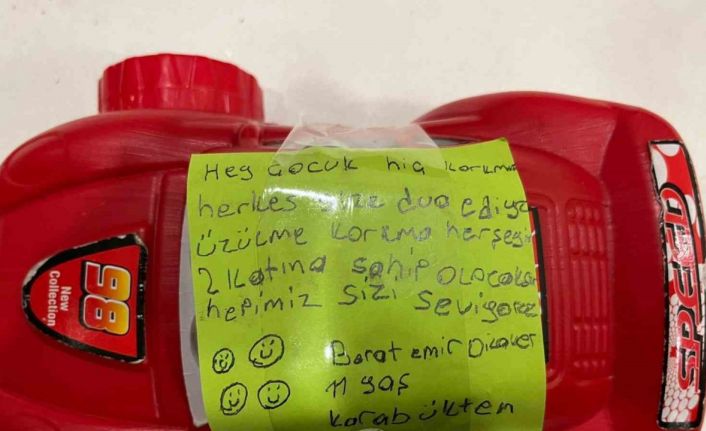 Hey çocuk hiç korkma
herkes size dua ediyo
üzülme korkma herşeyi
2 katına sahip olacaksı
hepimiz sizi seviyoruz
Berat emir
11 yaş
Karabükten
86
New
Collection
SPEED